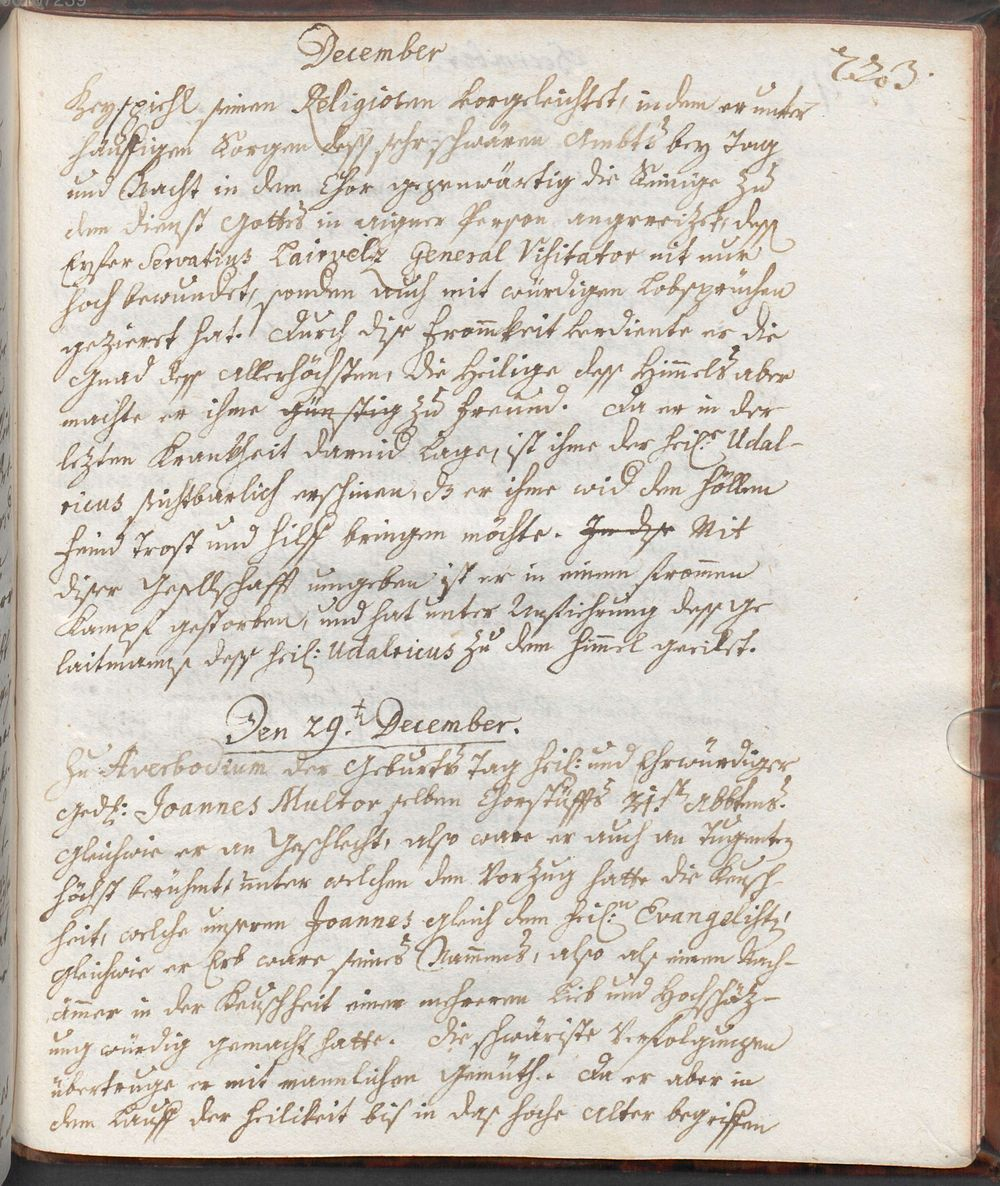 December
223.
Beyspiehl seinen Religiosen vorgeleichtet, in dem er unter
häuffigen Sorgen dess sehr schwären Ambts bey Tag
und Nacht in dem Chor gegenwärtig die Seinige zu
dem Dienst Gottes in aigner Person angereitzet, dess
Eyfer Servatius Lairvelz General Visitator nit nur
hoch bewundet, sonden auch mit würdigen Lobsprüchen
gezieret hat. Durch dise Frommkeit verdiente er die
Gnad dess Allerhöchsten, die Heilige dess Himmels aber
machte er ihme günstig zu Freund. Da er in der
letzten Krankheit darnid Lage, ist ihme der heil:e Udal-
ricus sichtbarlich erschinen, dz er ihme wid den Höllen
feind Trost und hilff bringen möchte. In dise Mit
diser Gesellschafft umgeben ist er in einem frommen
Kampf gestorben, und hat unter Anführung dess Ge
laitmanns dess heil: Udalricus zu dem himmel geeilet.
Den 29.t December.
Zu Averbodium der Geburts Tag heil: und Ehrwürdiger
Gedh: Joannes Multor selben Chorstüffts 31.st Abbtens.
Gleichwie er an Geschlecht, also ware er auch an Tugenten
höchst berühmt, unter welchen den Vorzug hatte die Keusch-
heit, welche unseren Joannes gleich dem heil:n Evangelisten,
gleichwie er Erb ware seines Nammens, also als einen Nach-
ämmer in der Keuschheit einer mehreren Lieb und Hochschätz-
ung würdig gemacht hatte. Die schwäriste Verfolgungen
übertruge er mit mannlichen Gemüth. Da er aber in
dem Lauff der heiligkeit bis in das hohe Alter begriffen